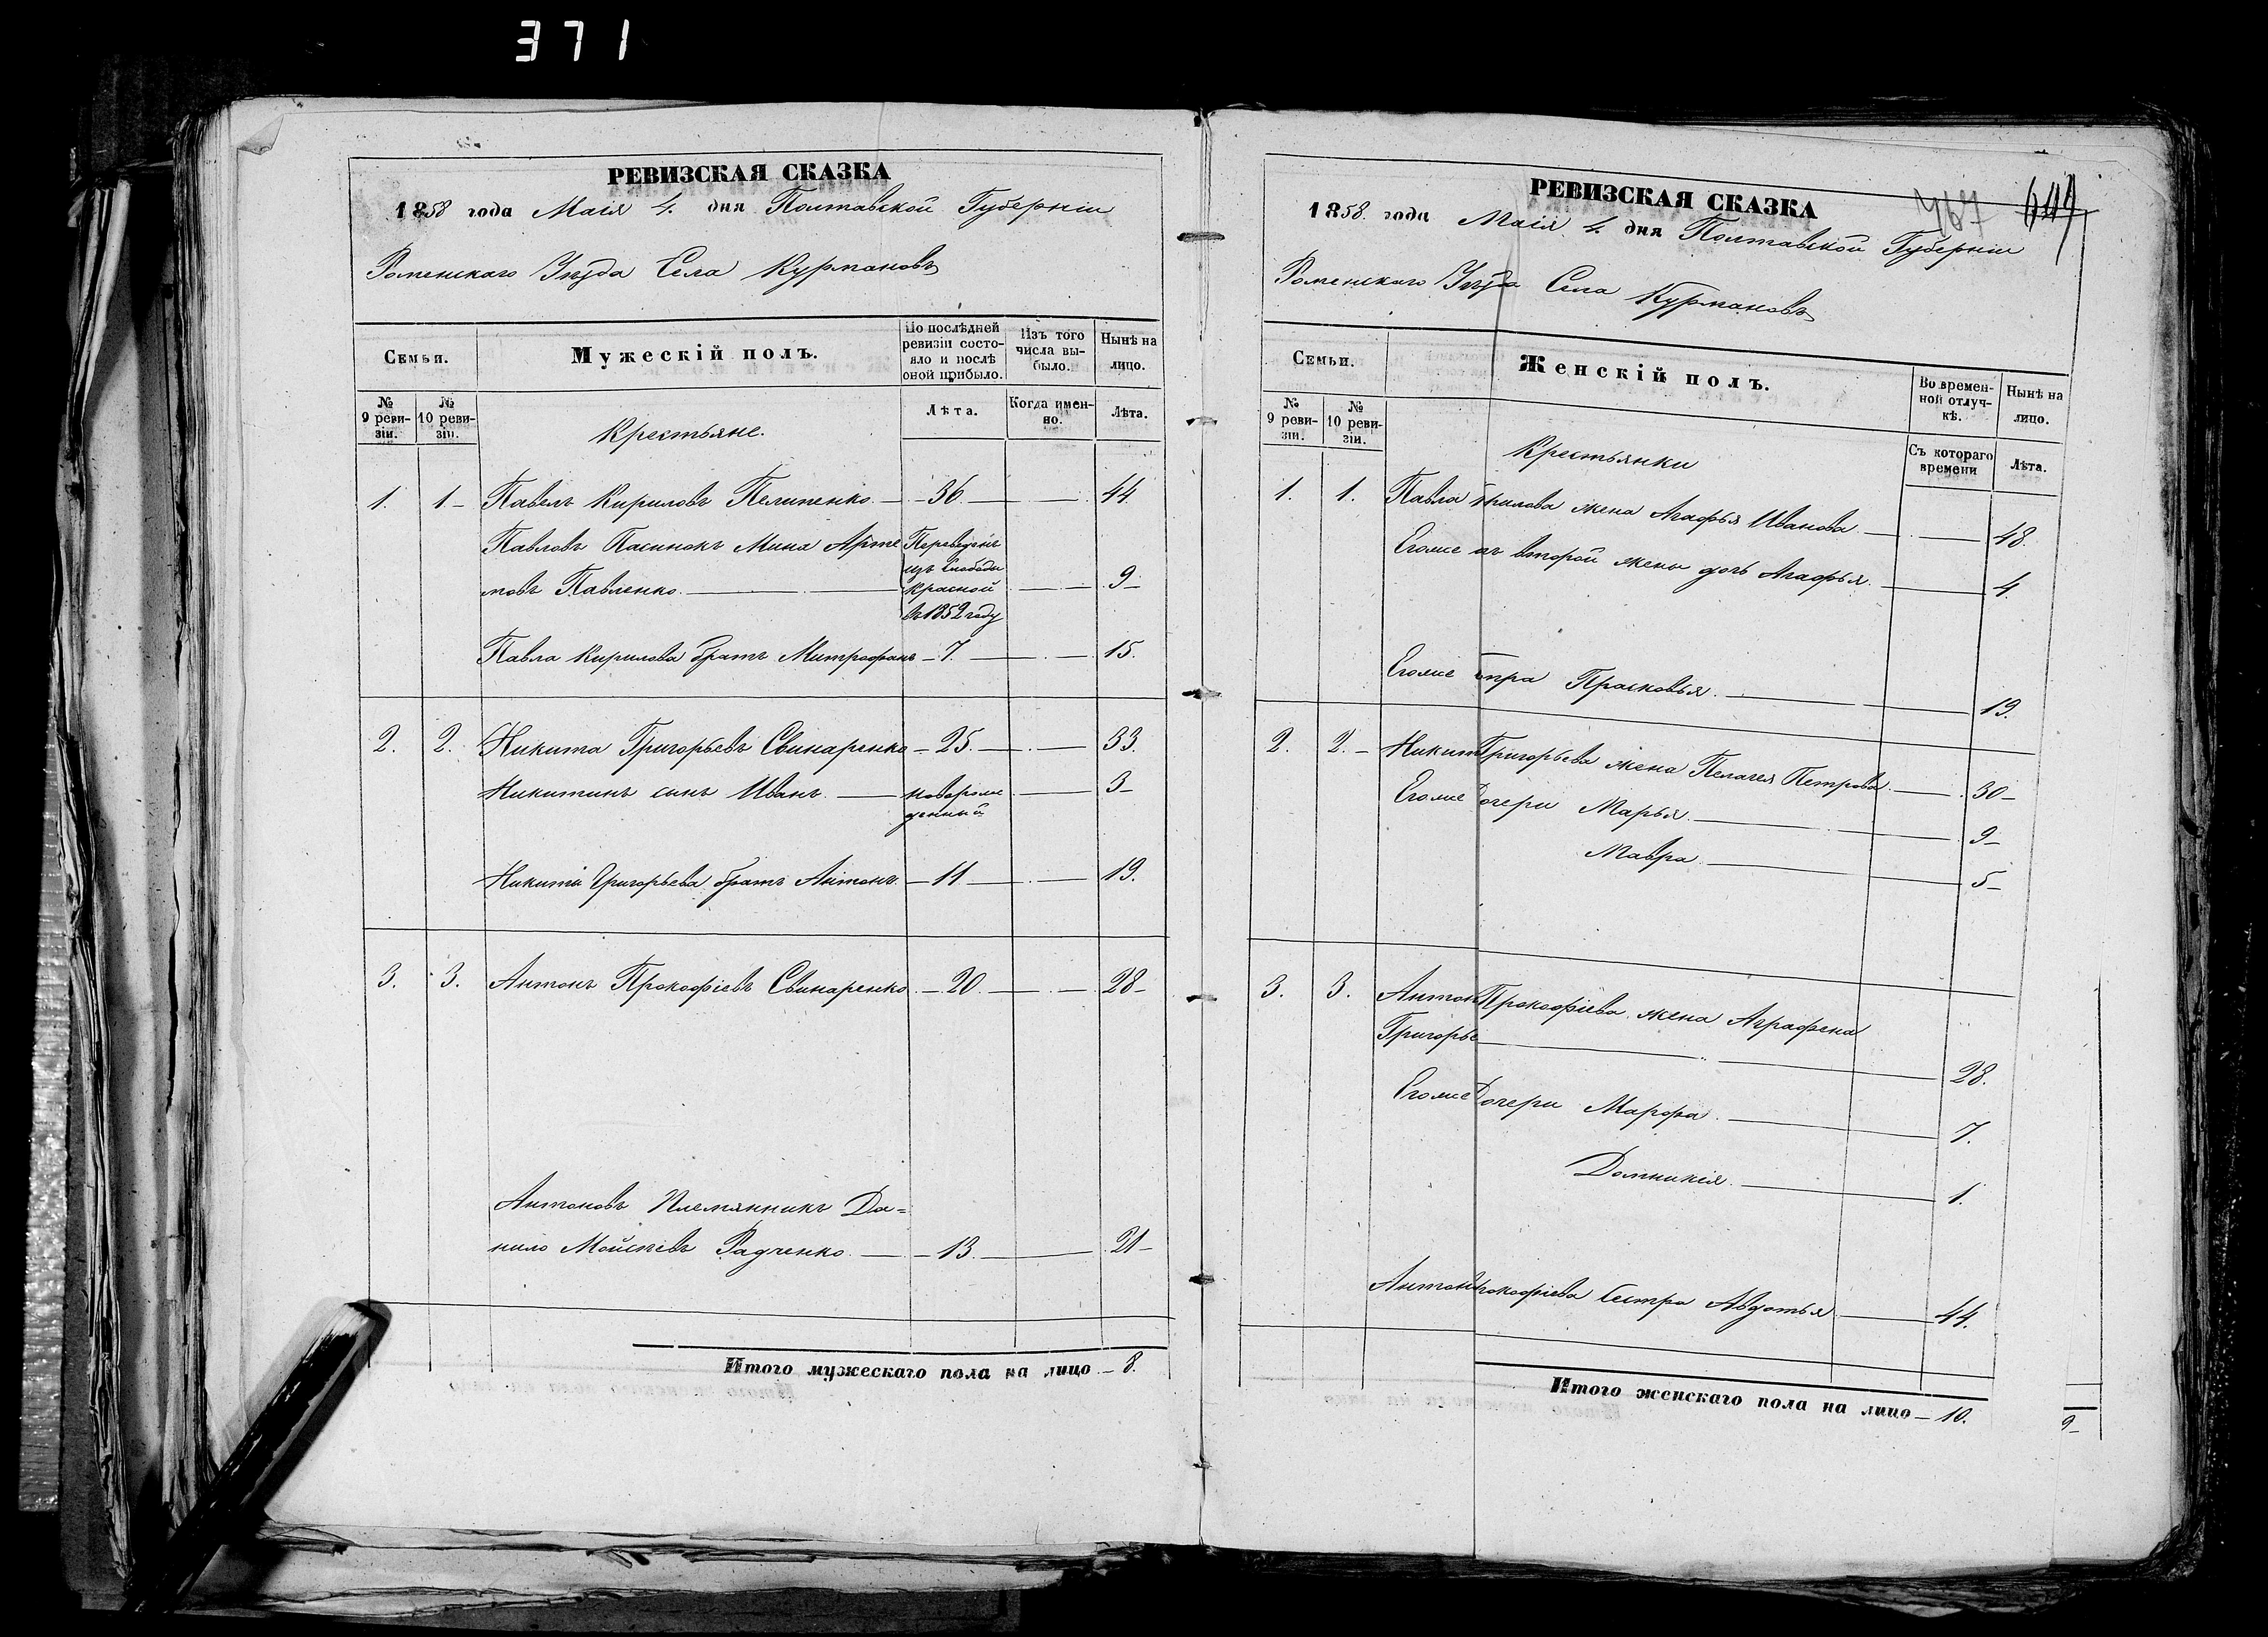 371
РЕВИЗСКАЯ СКАЗКА
1858 года Маія 4. дня Полтавской Губерніи
Роменскаго Уѣзда Села Курмановъ
Семьи.
Мужескій полъ.
По послѣдней ревизіи состояло и послѣ оной прибыло.
Изъ того числа выбыло.
Нынѣ на лицо.
№ 9 ревизіи.
№ 10 ревизіи.
Лѣта.
Когда именно.
Лѣта.
Крестьяне.
1. 1 - Павелъ Кириловъ Пелипенко - 36 - 44
Павловъ Пасинокъ Мина Арте
мовъ Павленко - Переведенъ изъ Слободы Красной въ 1852 году - 9 -
Павла Кирилова братъ Митрофанъ - 7. - 15.
2. 2. Никита Григорьевъ Свинаренко - 25. - 33.
Никитинъ сынъ Иванъ - новорож
денный - 3 -
Никиты Григорьева братъ Антонъ - 11 - 19.
3. 3. Антонъ Прокофіевъ Свинаренко - 20. - 28 -
Антоновъ Племянникъ Да=
нило Мойсѣевъ Радченко - 13. - 21 -
Итого мужескаго пола на лицо - 8.
РЕВИЗСКАЯ СКАЗКА
467 644
1858 года Маія 4. дня Полтавской Губерніи
Роменскаго Уѣзда Села Курмановъ
Семьи.
Женскій полъ.
Во временной отлучкѣ.
Нынѣ на лицо.
№ 9 ревизіи.
№ 10 ревизіи.
Съ котораго времени
Лѣта.
Крестьянки
1. 1. Павла рилова жена Агафья Иванова - 48.
Егоже отъ второй жены дочь Агафья. - 4
Егоже стра Прасковья. - 19.
2. 2. - Никит Григорьева жена Пелагея Петрова - 30 -
Егоже Дочери Марья. - 9 -
Мавра. - 5 -
3. 3. Антон Прокофіева жена Аграфена
Григорье - 28.
Егоже Дочери Марфа. - 7.
Домникія. - 1.
Антон Прокофіева Сестра Авдотья - 44.
Итого женскаго пола на лицо - 10.
9 -